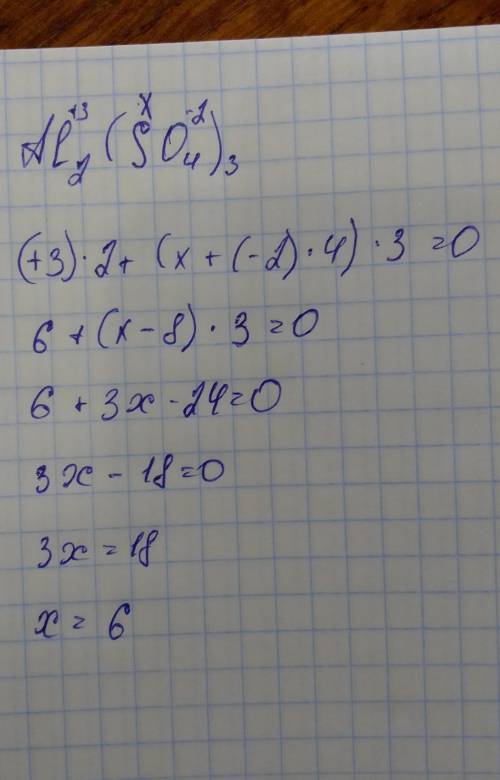 Al₂⁺³(SˣO₄⁻²)₃
(+3)·2+(x+(-2)·4)·3=0
6+(x-8)·3=0
6+3x-24=0
3x-18=0
3x=18
x=6